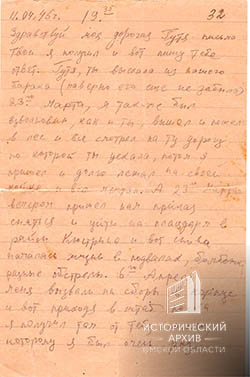 11.04.45г. 19³⁵ 32
Здравствуй моя дорогая Тутя. письмо
Твои я получил и вот пишу тебе
ответ. Тутя, ты выехала из нашего
барака (наверно его еще не забыла)
23го Марта, я так-же был
взволнован как и ты, вышел и пошел
в лес и всё смотрел на ту дорогу
по которой ты уехала, потом я
пришел и долго лежал на своей
койке и все мечтал. А 29 марта
вечером пришел нам приказ
сняться и уйти на плацдарм в
район Кюстрина и вот снова
началась жизнь в подвалах, бомбежки,
разные обстрелы. 6го Апреля
меня вызвали на сборы
и вот приходя в штаб
я получил там от тебя
которому я был очень рад
ИСТОРИЧЕСКИЙ
АРХИВ
ОМСКОЙ ОБЛАСТИ